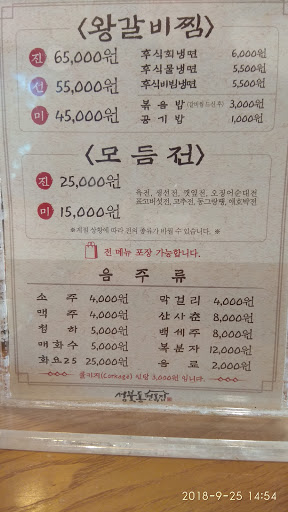 〈왕갈비찜〉
진 65,000원 후식회냉면 6,000원
선 55,000원 후식물냉면 5,500원
후식비빔냉면 5,500원
미 45,000원 볶음밥 3,000원
공기밥 1,000원
〈모듬전〉
진 25,000원 육전, 생선전, 깻잎전, 오징어순대전
표고버섯전, 고추전, 동그랑땡, 애호박전
미 15,000원
※계절 상황에 따라 전의 종류가 바뀔 수 있습니다. ※
전 메뉴 포장 가능합니다.
음 주 류
소 주 4,000원 막걸리 4,000원
맥 주 4,000원 산사춘 8,000원
청 하 5,000원 백세주 8,000원
매화수 5,000원 복분자 12,000원
화요25 25,000원 음 료 2,000원
콜키지(Corkage) 인당 3,000원 입니다.
2018-9-25 14:54